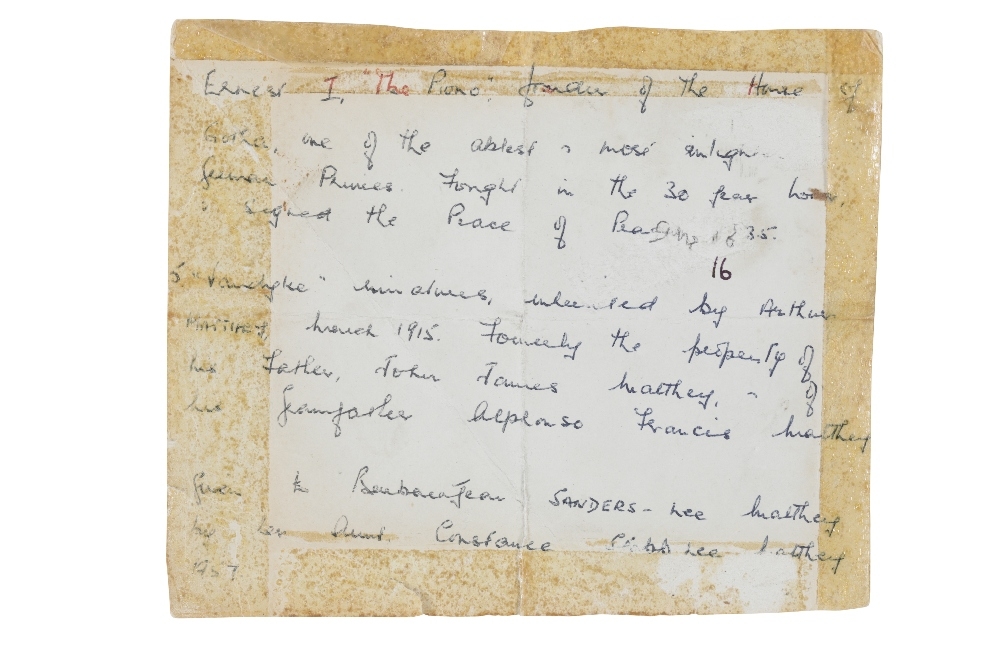 Ernest I, "The Pious" founder of the House of
Gotha, one of the ablest & most
German Princes. Fought in the 30 year
& signed the Peace of 35.
16
5 "Vandyke" miniatures, inherited by Arthur
Matthey March 1915. Formerly the property of
his Father, John James Matthey, & of
his Grandfather Alphonso Francis Matthey
Given to Barbara Jean SANDERS - nee Matthey
by her Aunt Constance nee Matthey
1957